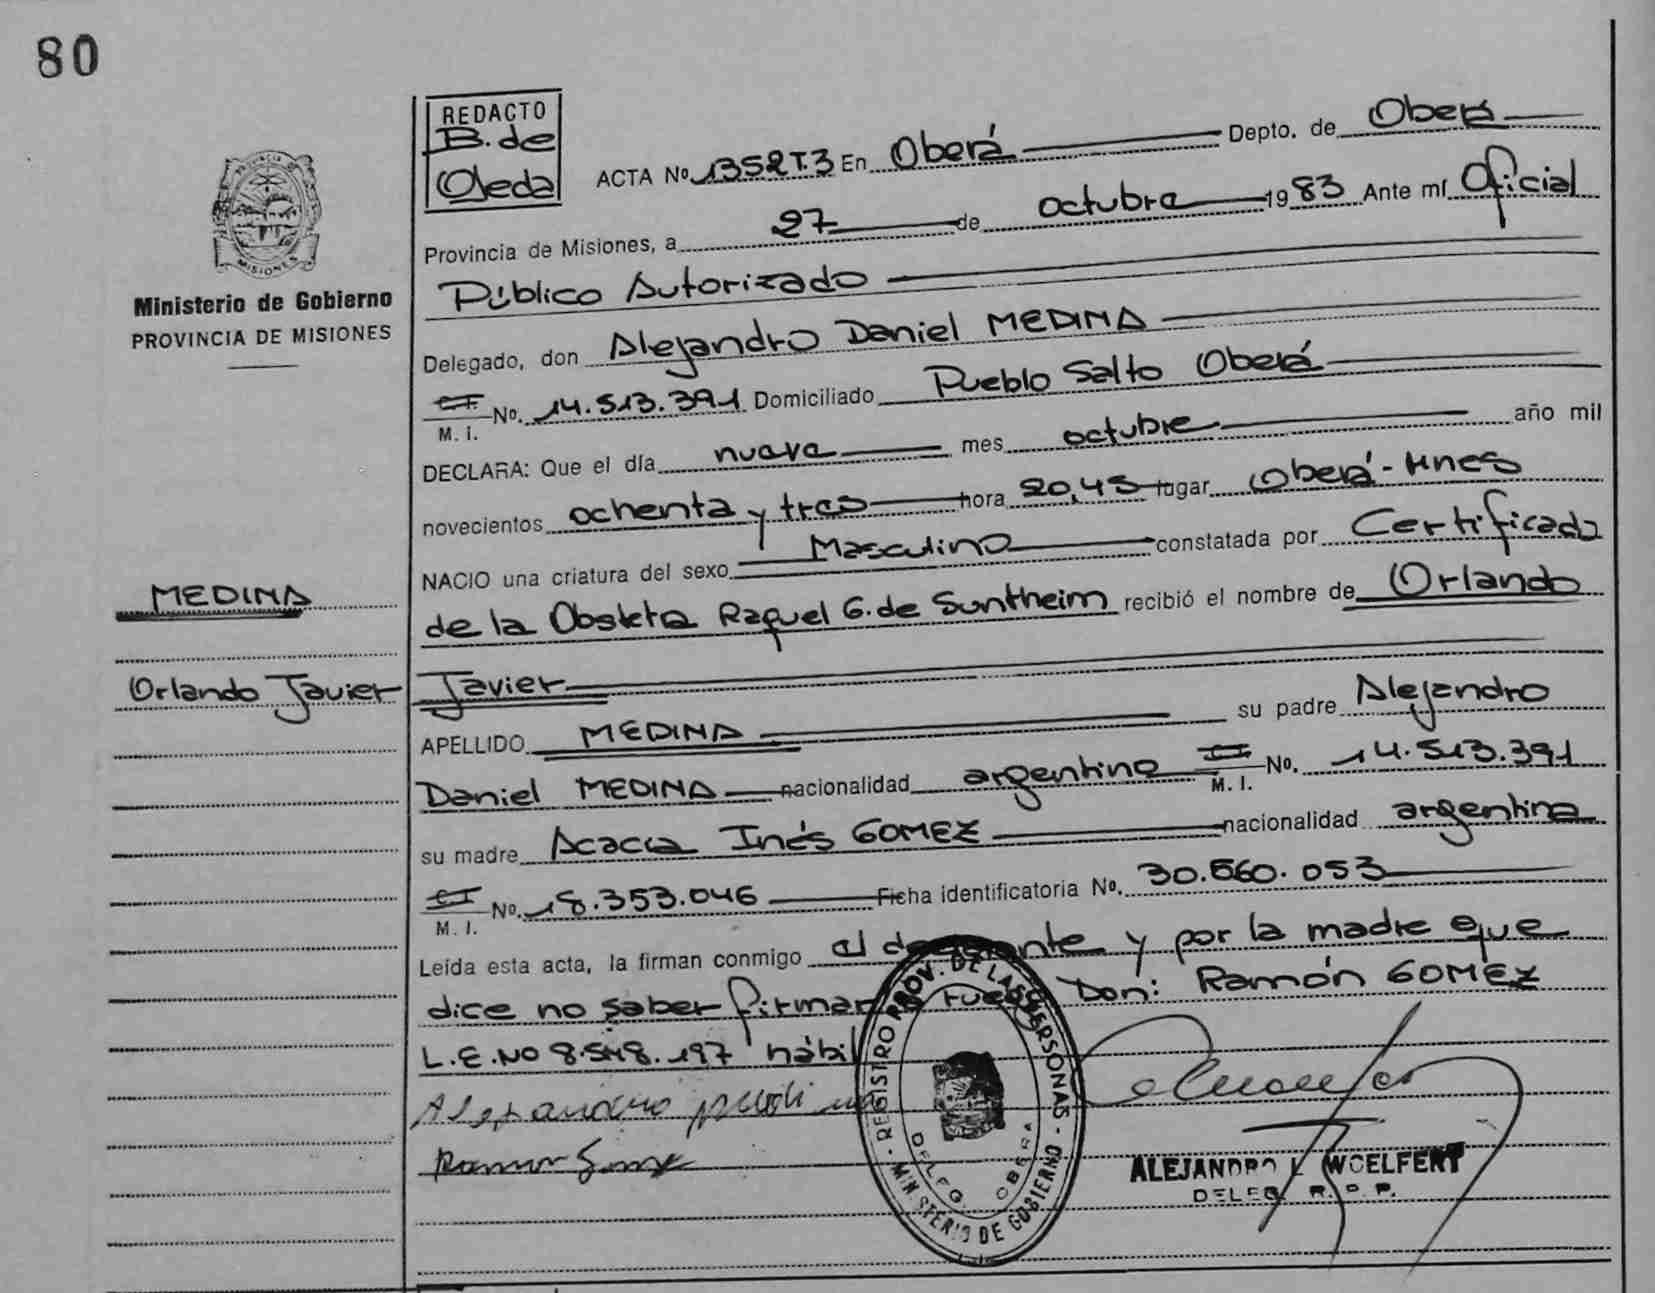 80
REDACTO
B. de
Ojeda
ACTA No 1352T.3 En Oberá Depto. de Oberá
Provincia de Misiones, a 27 de octubre 1983 Ante mí Oficial
Público Autorizado
MISIONES
Ministerio de Gobierno
PROVINCIA DE MISIONES
Delegado, don Alejandro Daniel MEDINA
C.I. M. I. No. 14.513.391 Domiciliado Pueblo Salto Oberá
DECLARA: Que el día nueve mes octubre año mil
novecientos ochenta y tres hora 20,45 lugar Oberá-Mnes
NACIO una criatura del sexo Masculino constatada por Certificado
de la Obstetra Raquel G. de Suntheim recibió el nombre de Orlando
Javier
MEDINA
Orlando Javier
APELLIDO MEDINA su padre Alejandro
Daniel MEDINA nacionalidad argentino C.I. M. I. No. 14.513.391
su madre Acacia Inés GOMEZ nacionalidad argentina
C.I. M. I. No. 18.353.046 Ficha identificatoria No. 30.560.053
Leída esta acta, la firman conmigo el y por la madre que
dice no saber firmar ruego Don: Ramón GOMEZ
L.E. No 8.548.197 hábil
Alejandro Medina
Ramon Gomez
REGISTRO PROV. DE LAS PERSONAS
MINISTERIO DE GOBIERNO
DELEG. OBERA
ALEJANDRO L. WOELFERT
DELEG. R. P. P.